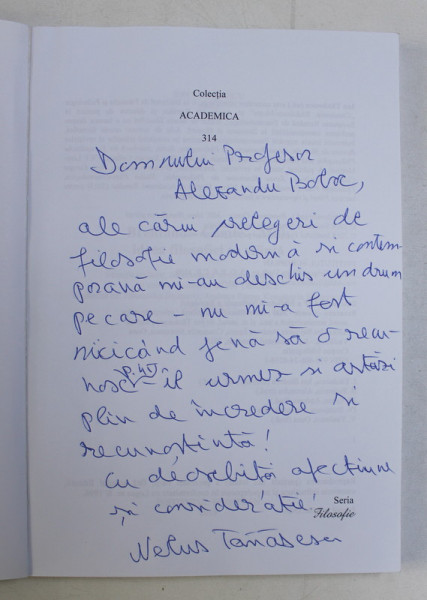 Colecția
ACADEMICA
314
Domnului Profesor
Alexandru Boboc,
ale cărui prelegeri de
filosofie modernă si contem
porană mi-au deschis un drum
pe care - nu mi-a fost
nicicând jenă să o recu-
nosc - îl urmez si astăzi
plin de încredere si
recunoștință!
Cu deosebită afecțiune
și considerație!
Seria
Filosofie
Nelus